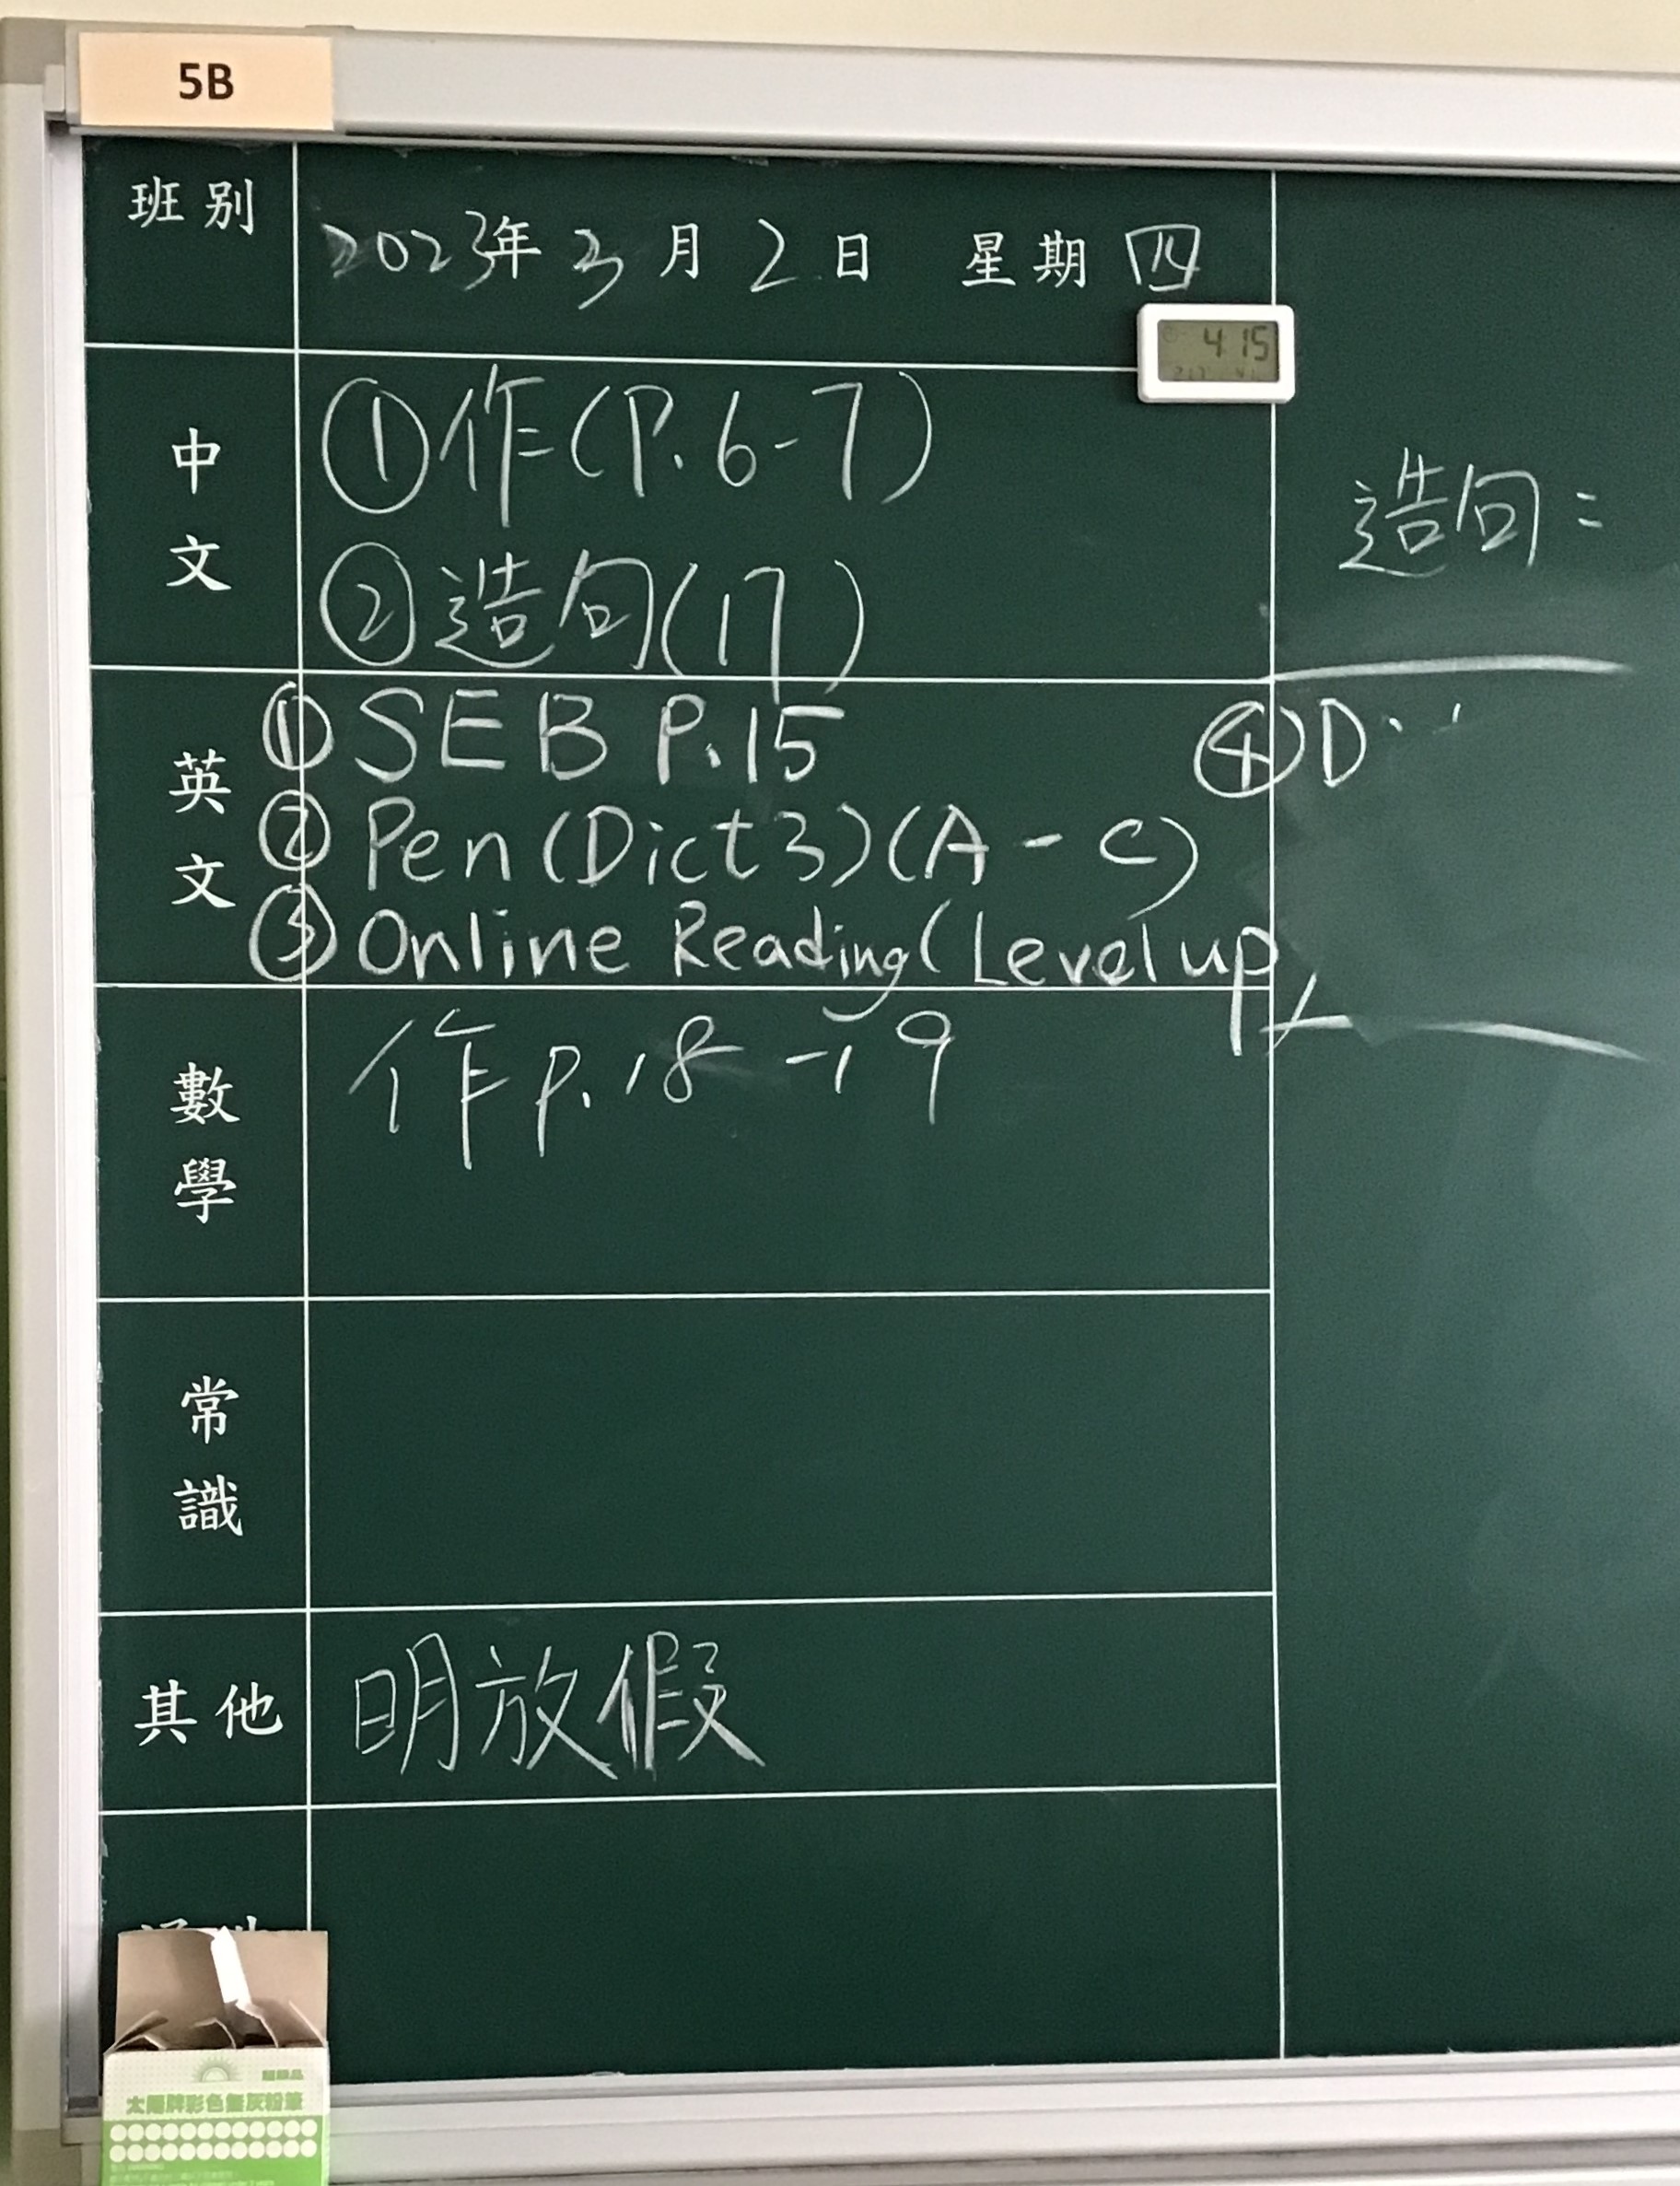 5B
班別
2023年 3 月 2 日 星期 四
4 15
中文
①作(P.6-7)
②造句(17)
造句:
英文
① SEB P.15
④ D
② Pen (Dict 3) (A - C)
③ Online Reading (Level up)
數學
作 p.18-19
常識
其他
明放假
太陽牌彩色無灰粉筆